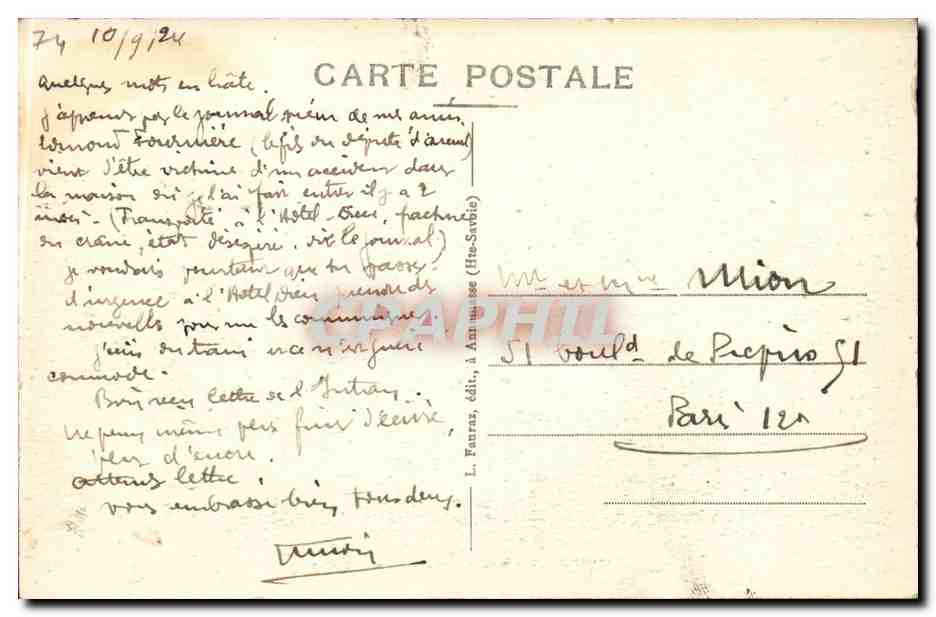 74 10/9/24
CARTE POSTALE
Quelques mots en hâte.
J'apprends par le journal qu'un de mes amis
Fournière (le fils du député d'
vient d'être victime d'un accident dans
la maison où je l'ai fait entrer il y a 2
mois. (Transporté à l'Hôtel-Dieu, fracture
du crâne, état désespéré, dit le journal)
Je voudrais pourtant que tu passes
d'urgence à l'Hôtel Dieu prendre des
nouvelles pour me les communiquer.
J'suis
commode.
Bien reçu lettre de l'
Ne peux même pas finir d'écrire,
plus d'encre.
Attends lettre.
Vous embrasse bien tous deux.
L. Fauraz, édit., à Annemasse (Hte-Savoie)
Mr et Mme Mion
51 boul^d de Picpus 51
Paris 12e
CPAPHIL